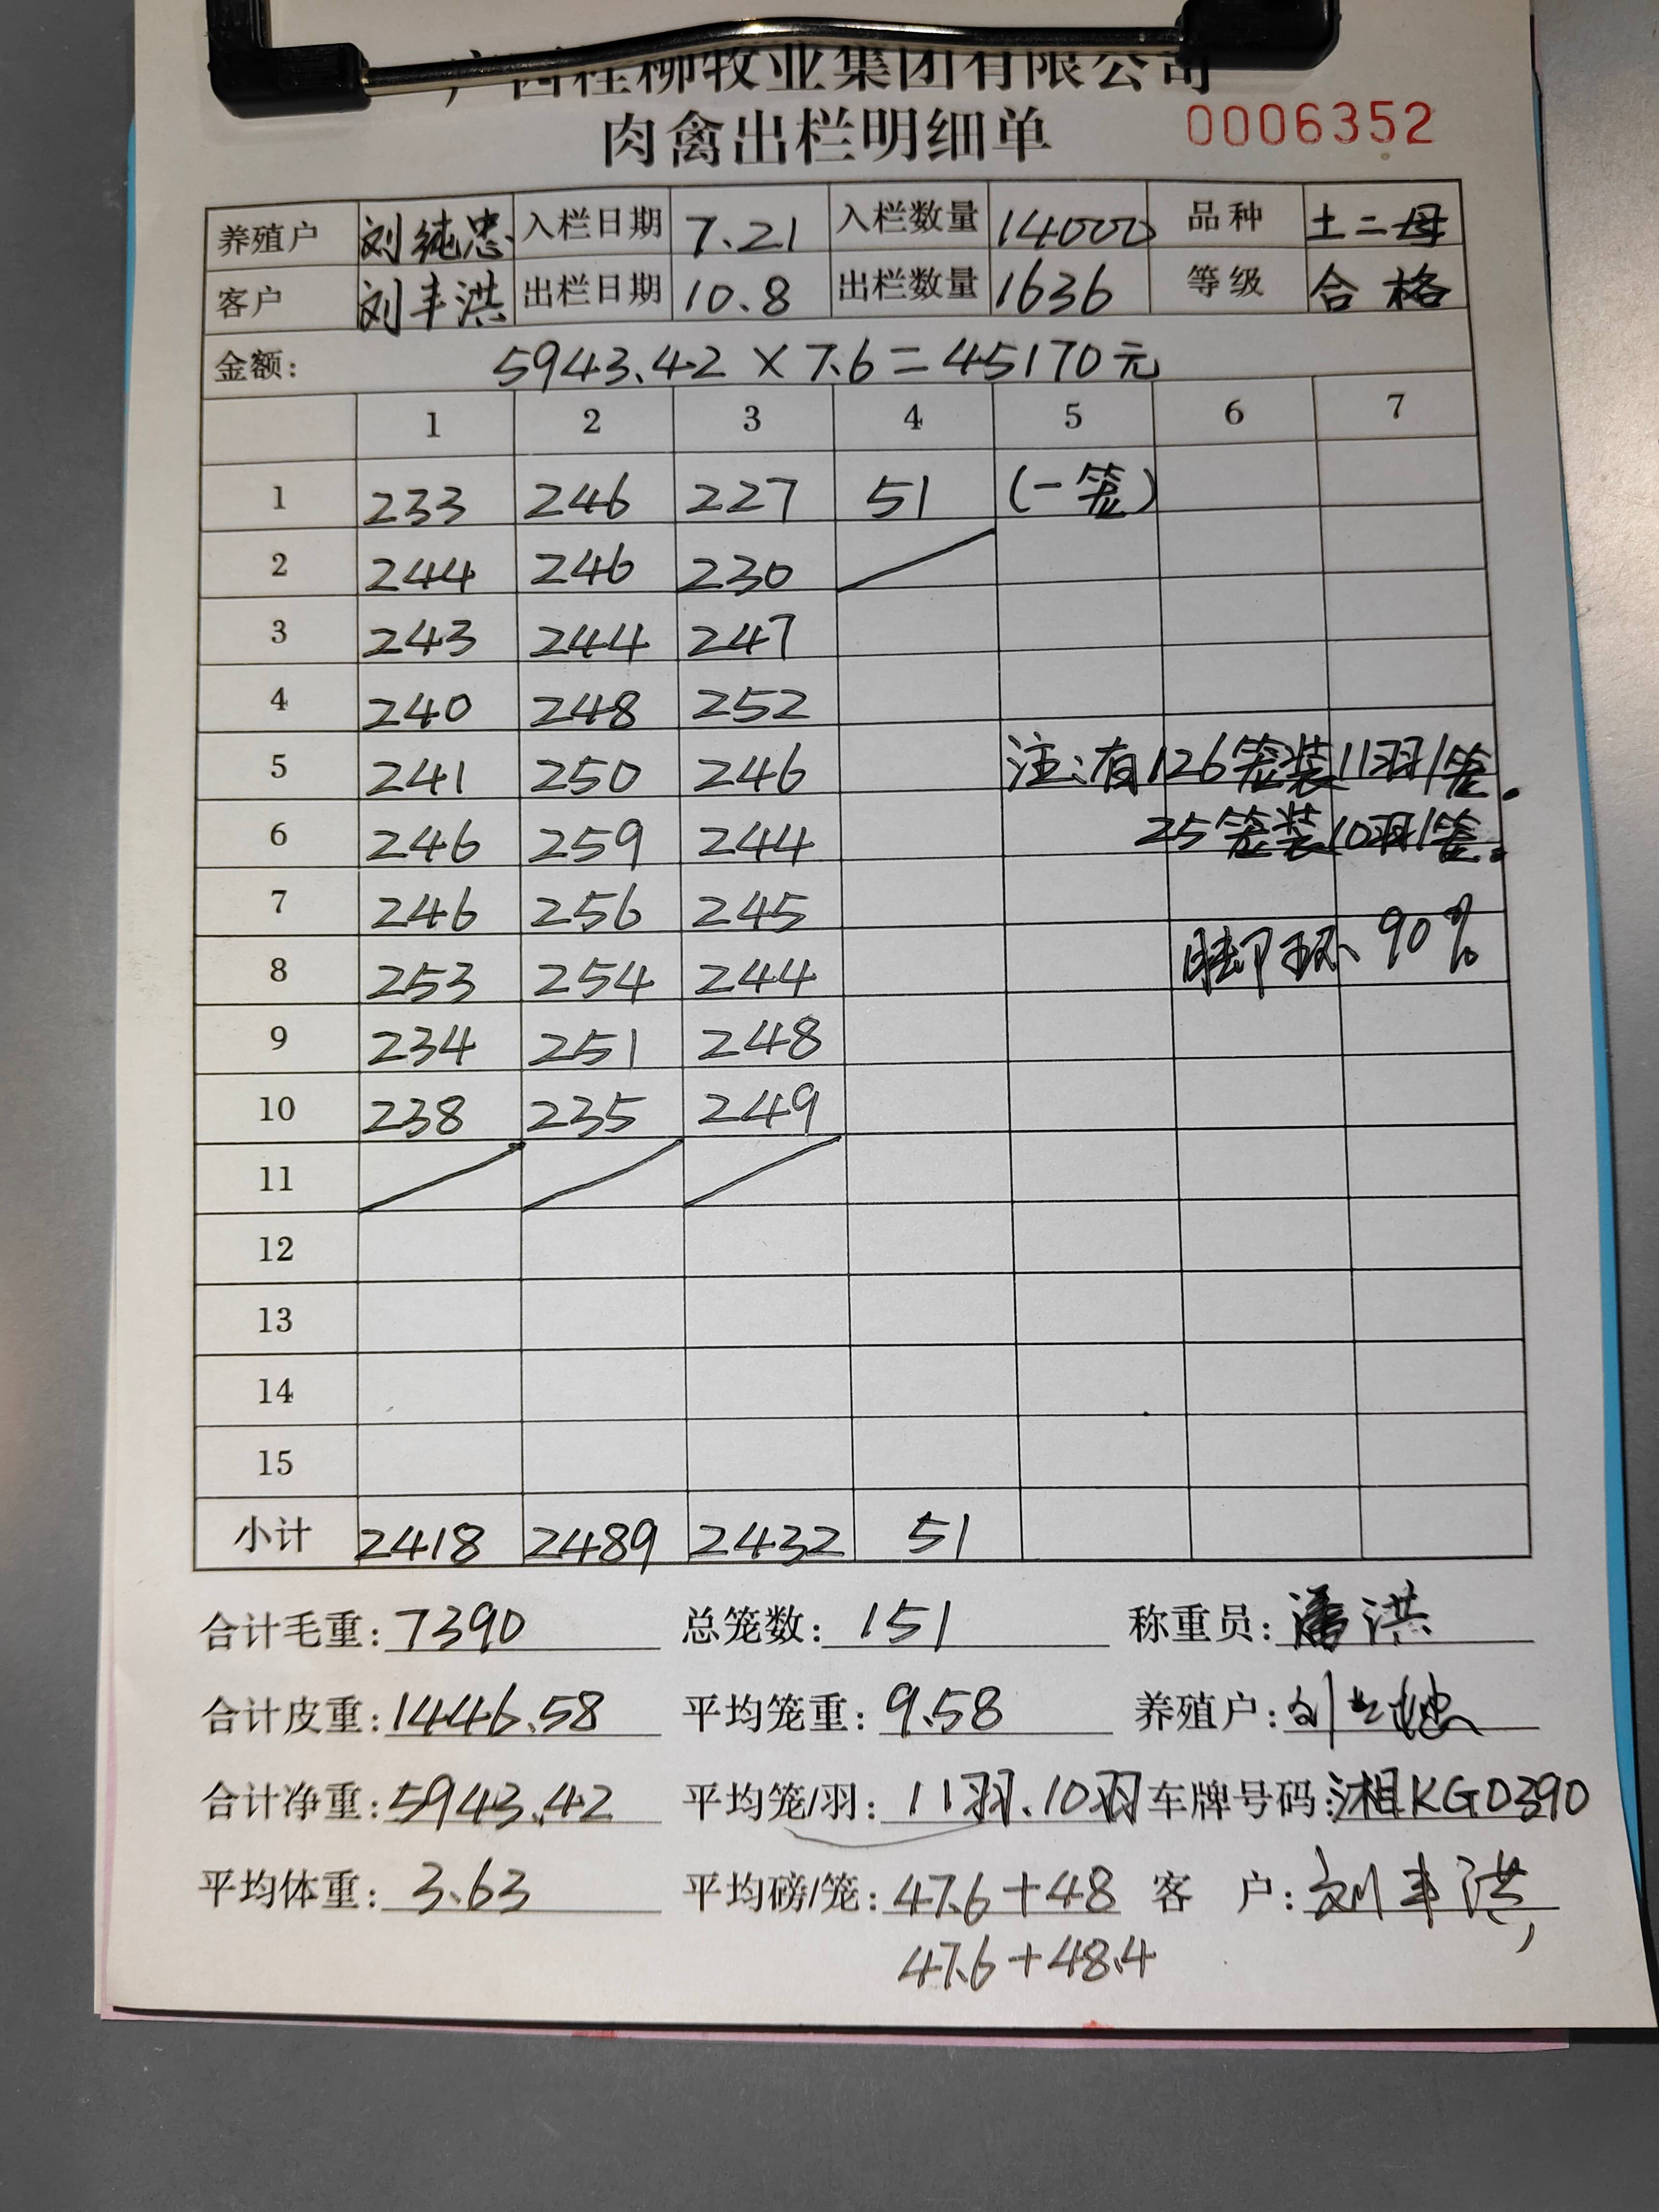 广西桂柳牧业集团有限公司
肉禽出栏明细单 0006352
养殖户 刘纯忠 入栏日期 7.21 入栏数量 14000 品种 土二母
客户 刘丰洪 出栏日期 10.8 出栏数量 1636 等级 合格
金额: 5943.42 × 7.6 = 45170元
1 2 3 4 5 6 7
1 233 246 227 51 (一笼)
2 244 246 230
3 243 244 247
4 240 248 252
5 241 250 246 注:有126笼装11羽1笼.
6 246 259 244 25笼装10羽1笼.
7 246 256 245
8 253 254 244 脚环 90%
9 234 251 248
10 238 235 249
11
12
13
14
15
小计 2418 2489 2432 51
合计毛重: 7390 总笼数: 151 称重员: 潘洪
合计皮重: 1446.58 平均笼重: 9.58 养殖户: 刘
合计净重: 5943.42 平均笼/羽: 11羽.10羽 车牌号码: 湘KG0390
平均体重: 3.63 平均磅/笼: 47.6+48 客 户: 刘丰洪
47.6+48.4